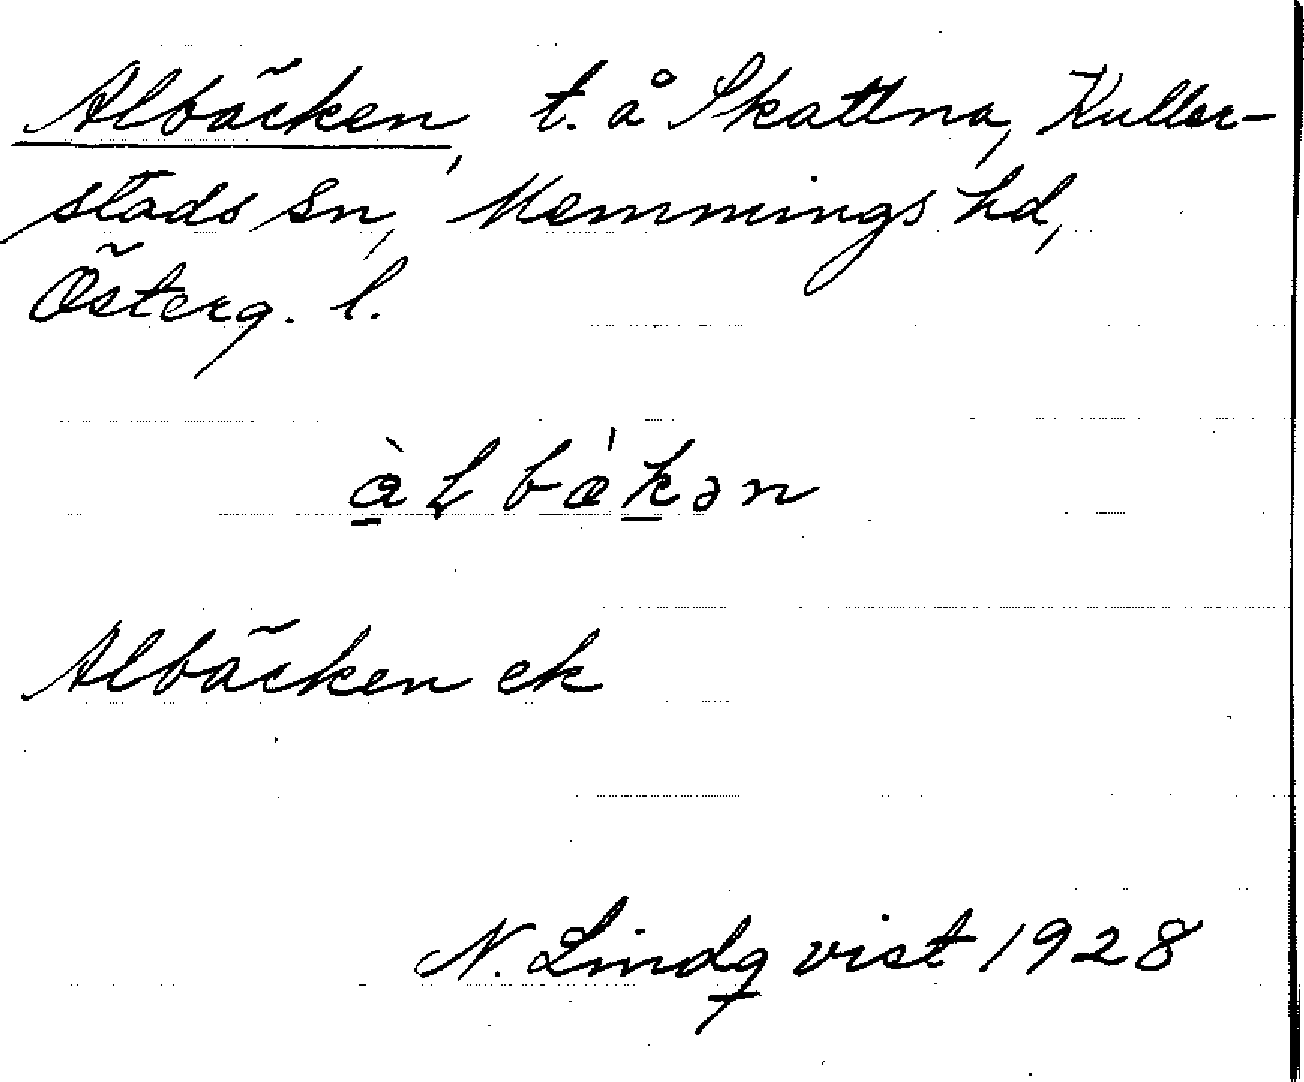 Albäcken, t. å Skattna, Kuller-
stads sn, Memmings hd,
Österg. l.
àlbä́kən
Albäcken ek
N. Lindqvist 1928